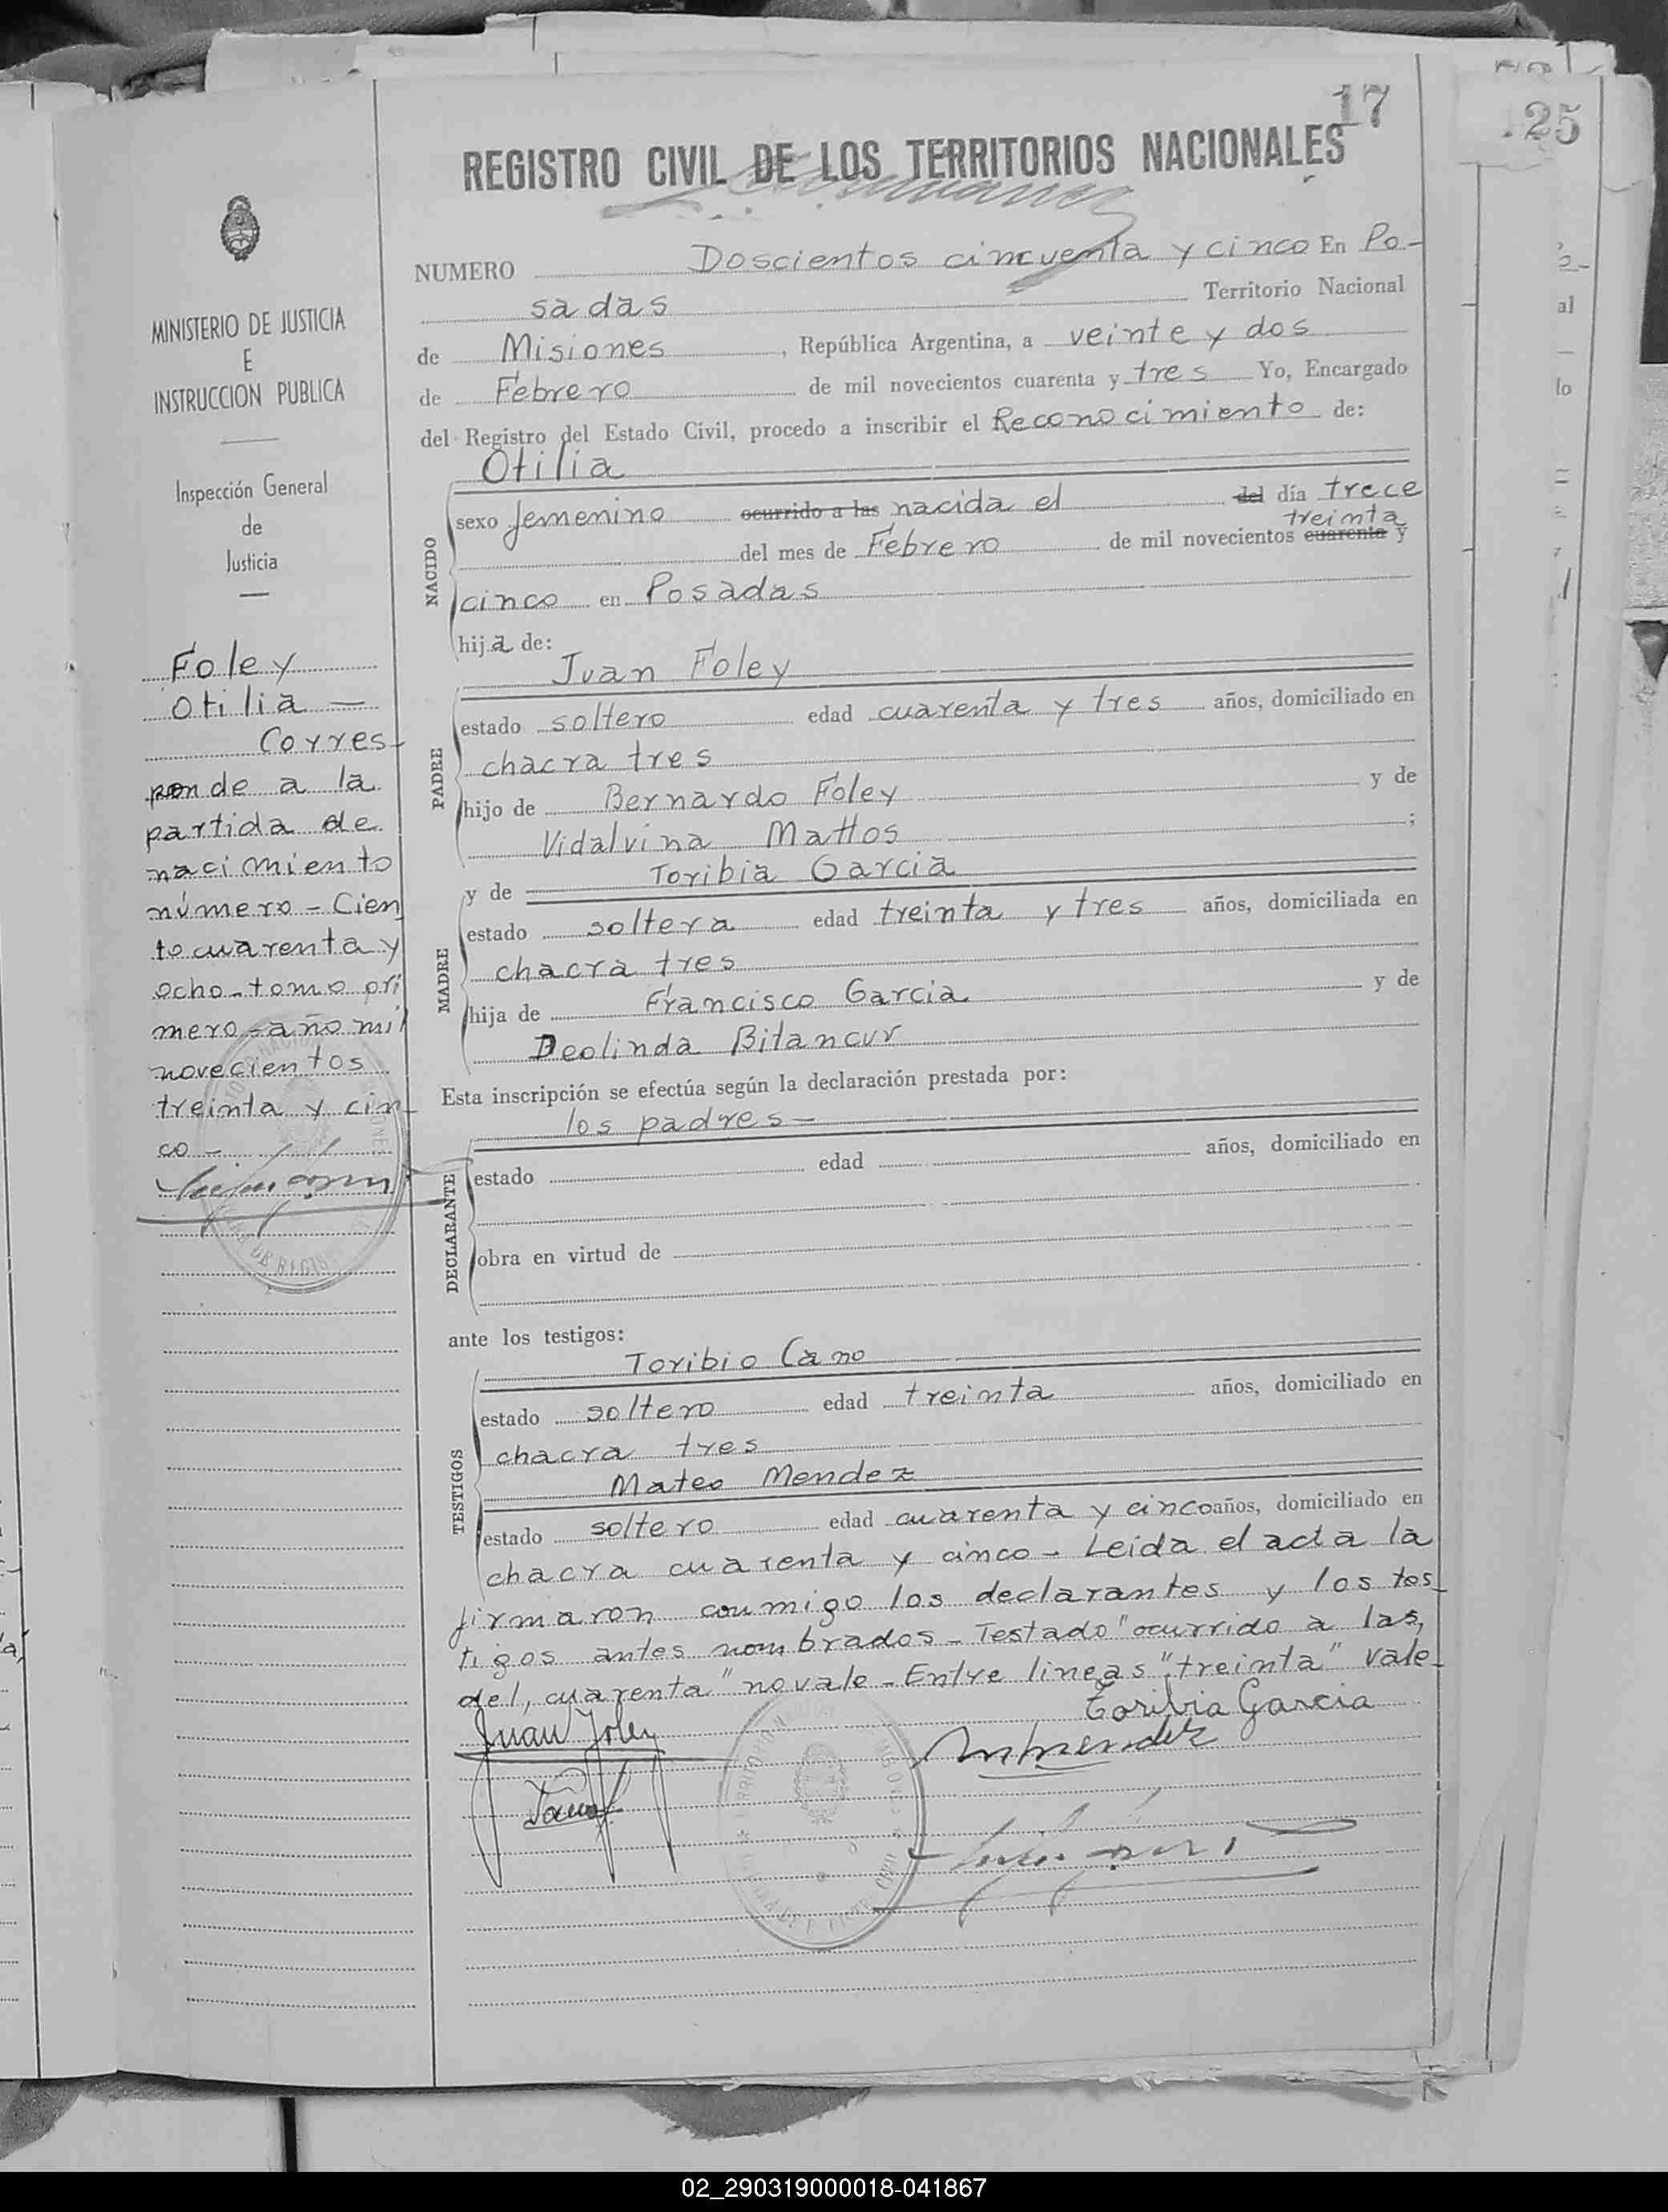 17
25
REGISTRO CIVIL DE LOS TERRITORIOS NACIONALES
NUMERO Doscientos cincuenta y cinco En Po-
sadas Territorio Nacional
de Misiones, República Argentina, a veinte y dos
de Febrero de mil novecientos cuarenta y tres Yo, Encargado
del Registro del Estado Civil, procedo a inscribir el Reconocimiento de:
Otilia
NACIDO
sexo femenino ocurrido a las nacida el del día trece
treinta
del mes de Febrero de mil novecientos cuarenta y
cinco en Posadas
hija de:
Juan Foley
PADRE
estado soltero edad cuarenta y tres años, domiciliado en
chacra tres
hijo de Bernardo Foley y de
Vidalvina Mattos ;
y de Toribia Garcia
MADRE
estado soltera edad treinta y tres años, domiciliada en
chacra tres
hija de Francisco Garcia y de
Deolinda Bitancur
Esta inscripción se efectúa según la declaración prestada por:
los padres-
DECLARANTE
estado edad años, domiciliado en
obra en virtud de
ante los testigos:
Toribio Cano
TESTIGOS
estado soltero edad treinta años, domiciliado en
chacra tres
Mateo Mendez
estado soltero edad cuarenta y cinco años, domiciliado en
chacra cuarenta y cinco - Leida el acta la
firmaron conmigo los declarantes y los tes-
tigos antes nombrados - Testado "ocurrido a las,
del, cuarenta" no vale - Entre lineas "treinta" vale-
Toribia Garcia
Juan Foley
MINISTERIO DE JUSTICIA
E
INSTRUCCION PUBLICA
Inspección General
de
Justicia
Foley
Otilia -
Corres-
ponde a la
partida de
nacimiento
número - Cien
to cuarenta y
ocho - tomo pri
mero - año mil
novecientos
treinta y cin-
co -
al
lo
02_290319000018-041867